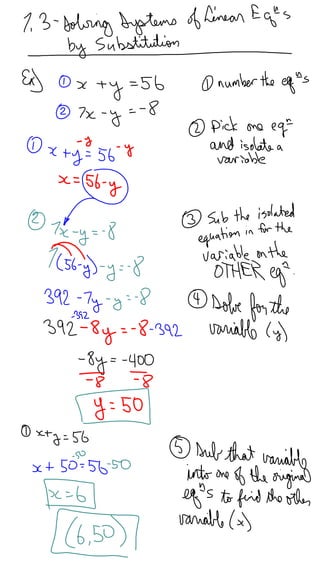 1.3 - Solving Systems of Linear Eqⁿs
by Substitution
Ex) ① x + y = 56
② 7x - y = -8
① number the eqⁿs
② Pick one eqⁿ
and isolate a
variable
① -y -y
x + y = 56
x = 56-y
② 7x - y = -8
7(56-y) - y = -8
392 - 7y - y = -8
-392
392 - 8y = -8 -392
-8y = -400
-8 -8
y = 50
③ Sub the isolated
equation in for the
variable on the
OTHER eqⁿ.
④ Solve for the
variable (y)
① x+y = 56
-50
x + 50 = 56 -50
x = 6
(6,50)
⑤ Sub that variable
into one of the original
eqⁿs to find the other
variable (x)